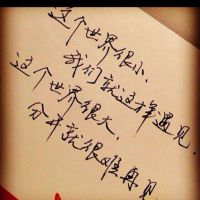 这个世界很小,
我们就这样遇见.
这个世界很大,
分开就很难再见